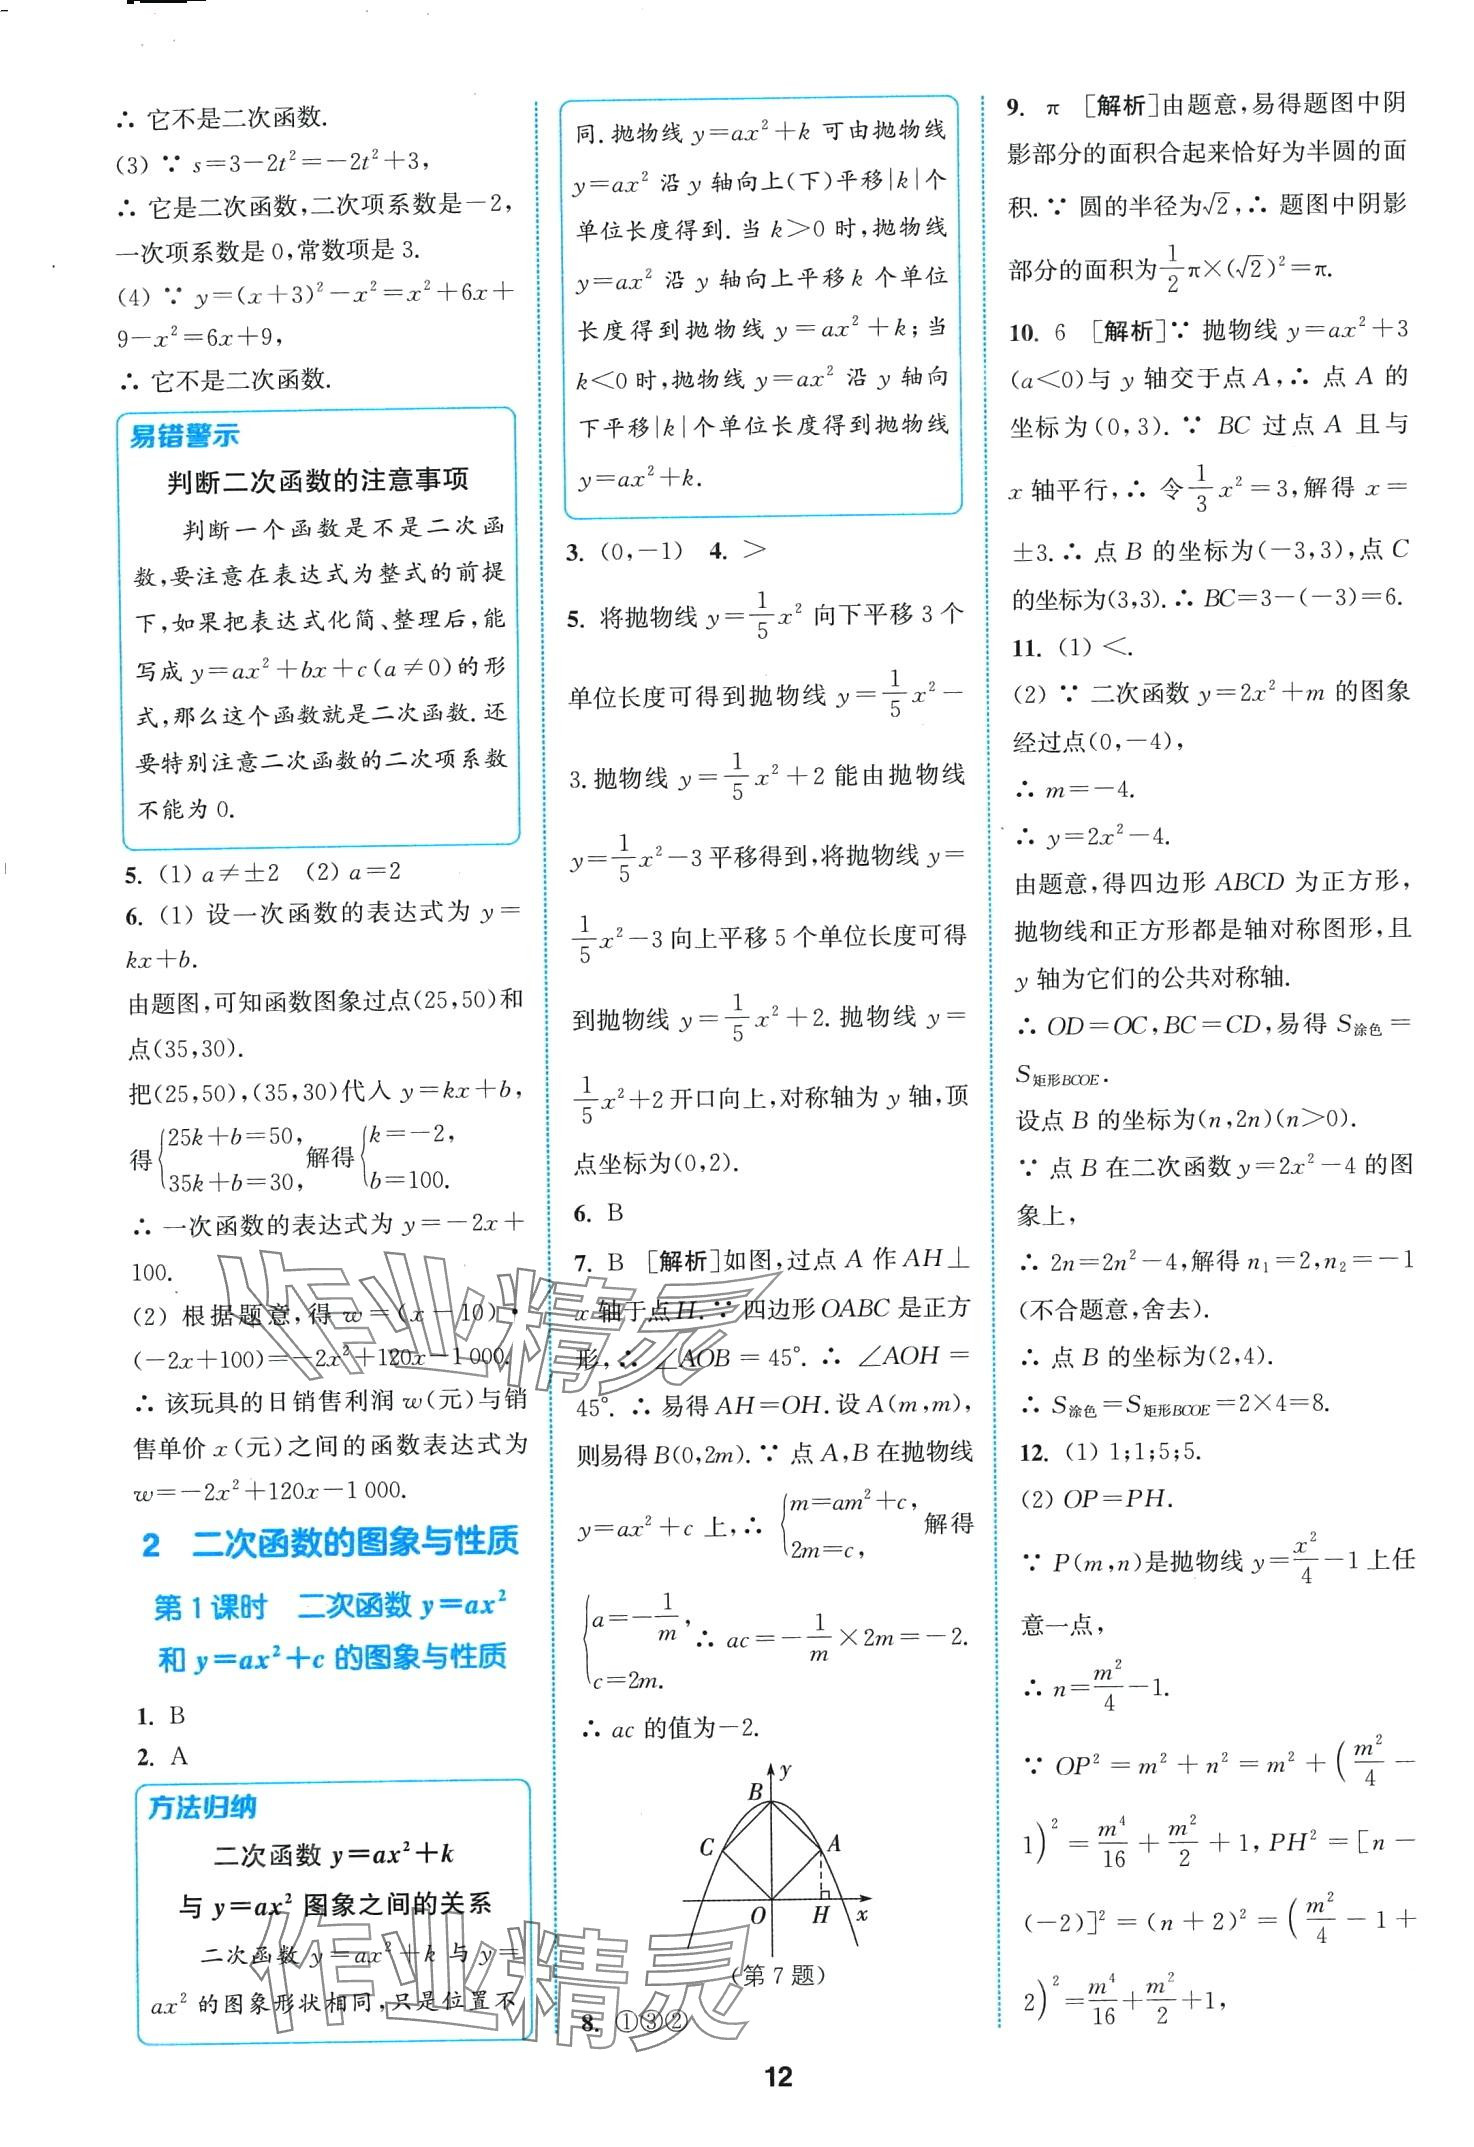 ∴ 它不是二次函数.
(3) ∵ s=3-2t²=-2t²+3,
∴ 它是二次函数,二次项系数是-2,
一次项系数是 0,常数项是 3.
(4) ∵ y=(x+3)²-x²=x²+6x+
9-x²=6x+9,
∴ 它不是二次函数.
易错警示
判断二次函数的注意事项
判断一个函数是不是二次函
数,要注意在表达式为整式的前提
下,如果把表达式化简、整理后,能
写成 y=ax²+bx+c(a≠0)的形
式,那么这个函数就是二次函数.还
要特别注意二次函数的二次项系数
不能为 0.
5. (1) a≠±2 (2) a=2
6. (1) 设一次函数的表达式为 y=
kx+b.
由题图,可知函数图象过点(25,50)和
点(35,30).
把(25,50),(35,30)代人 y=kx+b,
得{25k+b=50, 35k+b=30, 解得{k=-2, b=100.
∴ 一次函数的表达式为 y=-2x+
100.
(2) 根据题意,得 w=(x-10)·
(-2x+100)=-2x²+120x-1 000.
∴ 该玩具的日销售利润 w(元)与销
售单价 x(元)之间的函数表达式为
w=-2x²+120x-1 000.
2 二次函数的图象与性质
第 1 课时 二次函数 y=ax²
和 y=ax²+c 的图象与性质
1. B
2. A
方法归纳
二次函数 y=ax²+k
与 y=ax² 图象之间的关系
二次函数 y=ax²+k 与 y=
ax² 的图象形状相同,只是位置不
同.抛物线 y=ax²+k 可由抛物线
y=ax² 沿 y 轴向上(下)平移|k|个
单位长度得到.当 k>0 时,抛物线
y=ax² 沿 y 轴向上平移 k 个单位
长度得到抛物线 y=ax²+k;当
k<0 时,抛物线 y=ax² 沿 y 轴向
下平移|k|个单位长度得到抛物线
y=ax²+k.
3. (0,-1) 4. >
5. 将抛物线 y=1/5x² 向下平移 3 个
单位长度可得到抛物线 y=1/5x²-
3.抛物线 y=1/5x²+2 能由抛物线
y=1/5x²-3 平移得到,将抛物线 y=
1/5x²-3 向上平移 5 个单位长度可得
到抛物线 y=1/5x²+2.抛物线 y=
1/5x²+2 开口向上,对称轴为 y 轴,顶
点坐标为(0,2).
6. B
7. B [解析]如图,过点 A 作 AH⊥
x 轴于点 H.∵ 四边形 OABC 是正方
形,∴ ∠AOB=45°.∴ ∠AOH=
45°.∴ 易得 AH=OH.设 A(m,m),
则易得 B(0,2m).∵ 点 A,B 在抛物线
y=ax²+c 上,∴ {m=am²+c, 2m=c, 解得
{a=-1/m, c=2m. ∴ ac=-1/m×2m=-2.
∴ ac 的值为-2.
y
B
C
A
O
H
x
(第 7 题)
8. ①③②
9. π [解析]由题意,易得题图中阴
影部分的面积合起来恰好为半圆的面
积.∵ 圆的半径为√2,∴ 题图中阴影
部分的面积为1/2π×(√2)²=π.
10. 6 [解析]∵ 抛物线 y=ax²+3
(a<0)与 y 轴交于点 A,∴ 点 A 的
坐标为(0,3).∵ BC 过点 A 且与
x 轴平行,∴ 令1/3x²=3,解得 x=
±3.∴ 点 B 的坐标为(-3,3),点 C
的坐标为(3,3).∴ BC=3-(-3)=6.
11. (1) <.
(2) ∵ 二次函数 y=2x²+m 的图象
经过点(0,-4),
∴ m=-4.
∴ y=2x²-4.
由题意,得四边形 ABCD 为正方形,
抛物线和正方形都是轴对称图形,且
y 轴为它们的公共对称轴.
∴ OD=OC,BC=CD,易得 S涂色=
S矩形BCOE.
设点 B 的坐标为(n,2n)(n>0).
∵ 点 B 在二次函数 y=2x²-4 的图
象上,
∴ 2n=2n²-4,解得 n₁=2,n₂=-1
(不合题意,舍去).
∴ 点 B 的坐标为(2,4).
∴ S涂色=S矩形BCOE=2×4=8.
12. (1) 1;1;5;5.
(2) OP=PH.
∵ P(m,n)是抛物线 y=x²/4-1 上任
意一点,
∴ n=m²/4-1.
∵ OP²=m²+n²=m²+(m²/4-
1)²=m⁴/16+m²/2+1,PH²=[n-
(-2)]²=(n+2)²=(m²/4-1+
2)²=m⁴/16+m²/2+1,
12
作业精灵
作业精灵